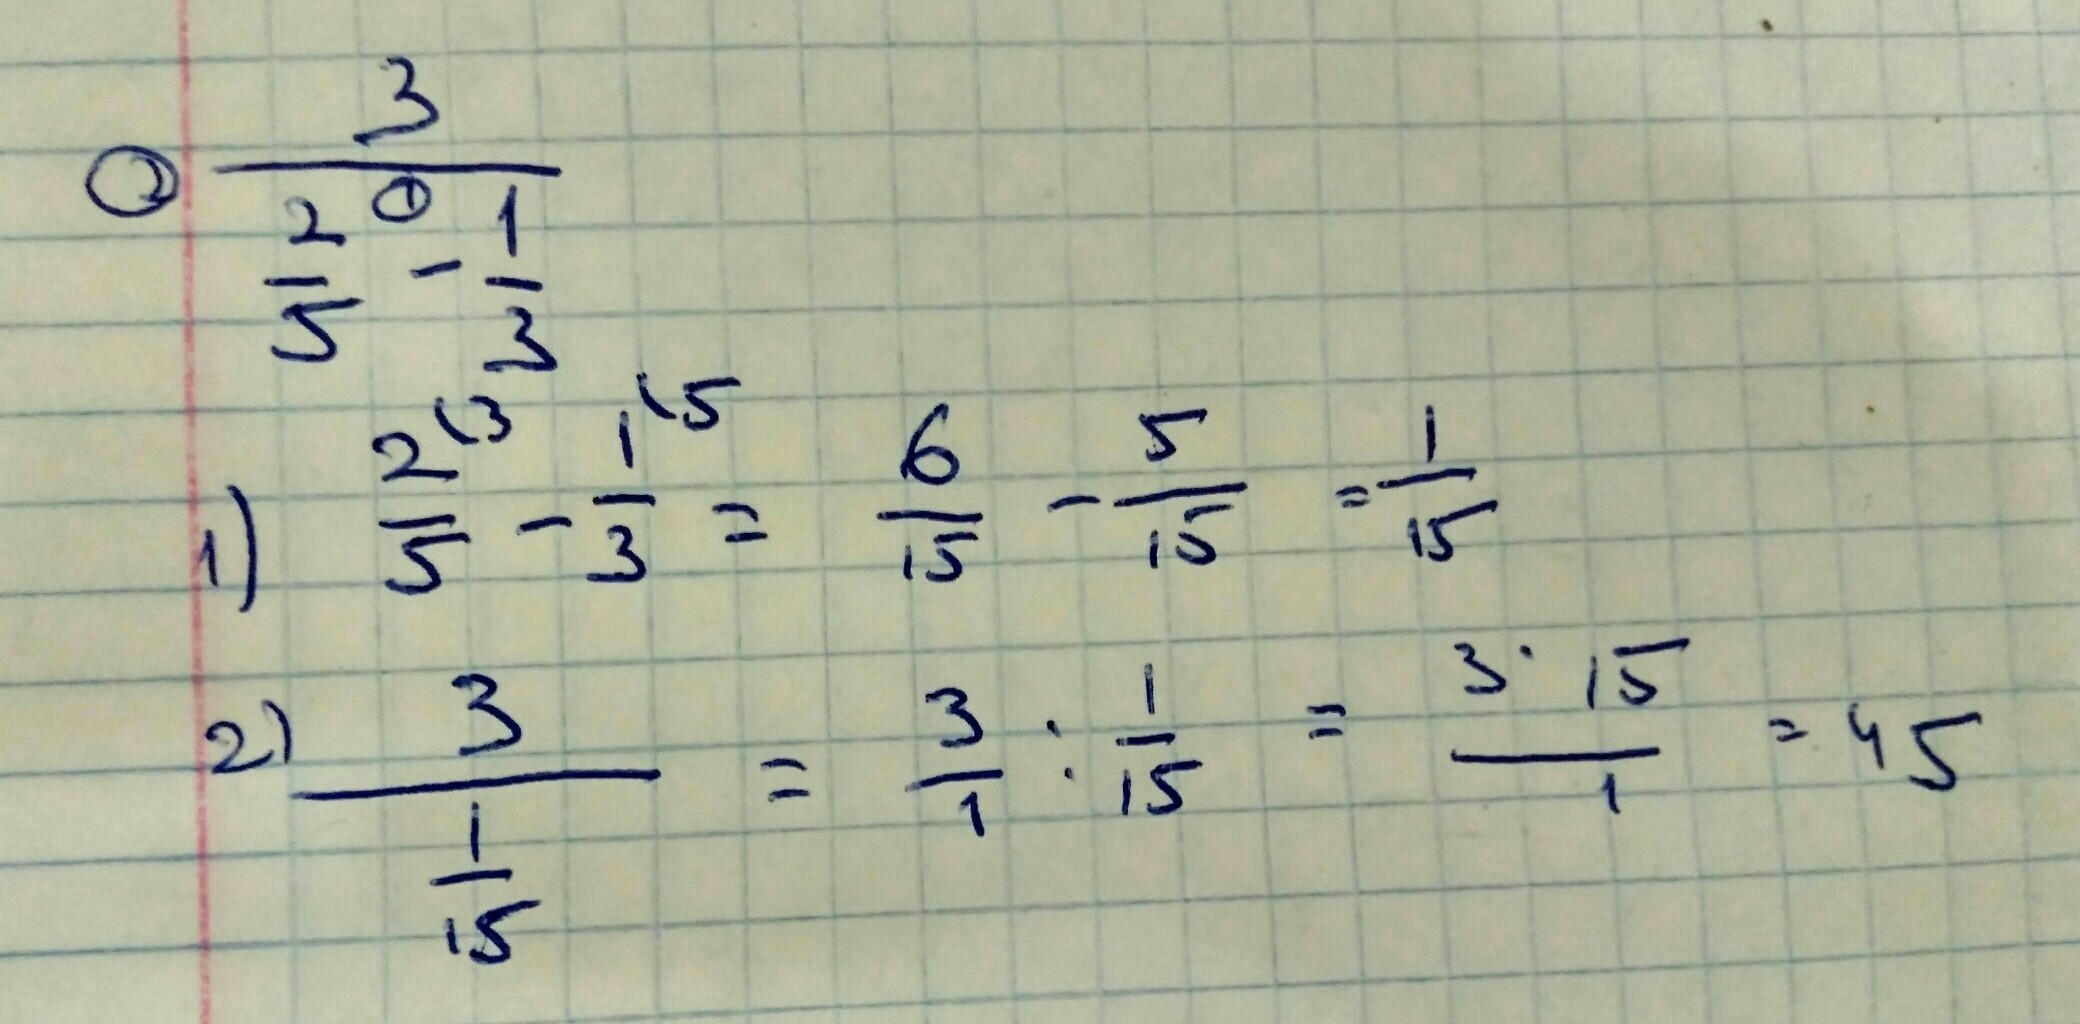 ② 3
① 2/5 - 1/3
1) 2\3/5 - 1\5/3 = 6/15 - 5/15 = 1/15
2) 3/(1/15) = 3/1 : 1/15 = 3 · 15/1 = 45